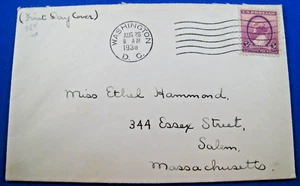 (First Day Cover)
U.S. POSTAGE
WASHINGTON
AUG 26
8 AM
D. C.
Miss Ethel Hammond,
344 Essex Street,
Salem,
Massachusetts.